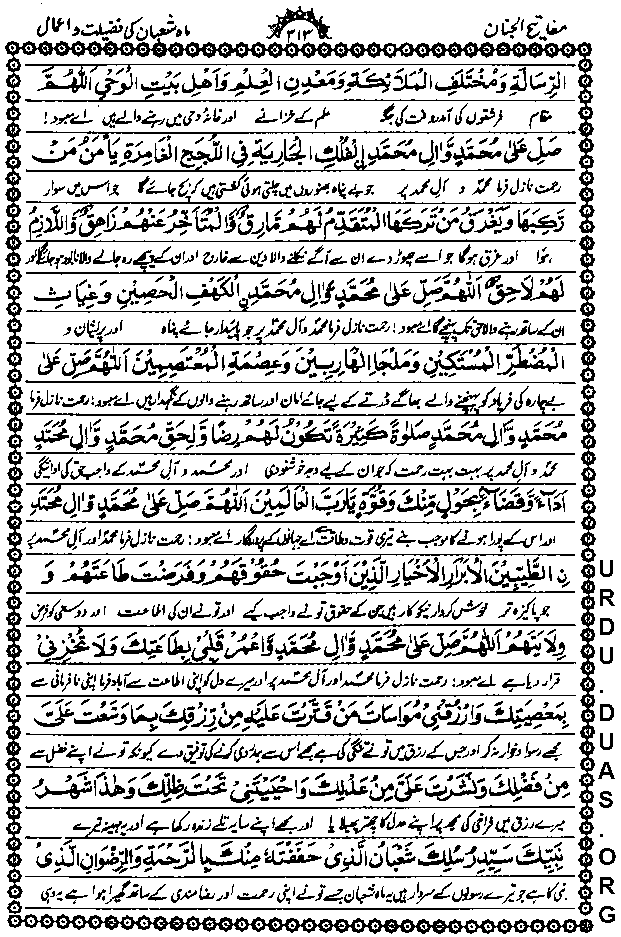 مفاتیح الجنان ۳۱۳ ماہ شعبان کی فضیلت و اعمال
الرِّسَالَةِ وَمُخْتَلَفِ الْمَلَائِكَةِ وَمَعْدِنِ الْعِلْمِ وَاَهْلِ بَيْتِ الْوَحْيِ اَللّٰهُمَّ
مقام فرشتوں کی آمد و رفت کی جگہ علم کے خزانے اور خانۂ وحی میں رہنے والے ہیں اے معبود!
صَلِّ عَلٰى مُحَمَّدٍ وَّاٰلِ مُحَمَّدٍ الْفُلْكِ الْجَارِيَةِ فِى اللُّجَجِ الْغَامِرَةِ يَأْمَنُ مَنْ
رحمت نازل فرما محمدؐ و آل محمدؐ پر جو بے پناہ بھنوروں میں چلتی ہوئی کشتی ہیں کہ بچ جائے گا جو اس میں سوار
رَّكِبَهَا وَيَغْرَقُ مَنْ تَرَكَهَا الْمُتَقَدِّمُ لَهُمْ مَارِقٌ وَّالْمُتَأَخِّرُ عَنْهُمْ زَاهِقٌ وَّاللَّازِمُ
ہوا اور غرق ہوگا جو اسے چھوڑ دے ان سے آگے نکلنے والا دین سے خارج اور ان کے پیچھے رہ جانے والا نابود ہو جائے گا اور
لَهُمْ لَاحِقٌ اَللّٰهُمَّ صَلِّ عَلٰى مُحَمَّدٍ وَّاٰلِ مُحَمَّدِنِ الْكَهْفِ الْحَصِيْنِ وَغِيَاثِ
ان کے ساتھ رہنے والا حق تک پہنچے گا اے معبود! رحمت نازل فرما محمدؐ و آل محمدؐ پر جو پائیدار جائے پناہ اور پریشان و
الْمُضْطَرِّ الْمُسْتَكِيْنِ وَمَلْجَاِ الْهَارِبِيْنَ وَعِصْمَةِ الْمُعْتَصِمِيْنَ اَللّٰهُمَّ صَلِّ عَلٰى
بے چارہ کی فریاد کو پہنچنے والے بھاگنے ڈرنے کے لیے جائے امان اور ساتھ رہنے والوں کے نگہدار ہیں اے معبود! رحمت نازل فرما
مُحَمَّدٍ وَّاٰلِ مُحَمَّدٍ صَلٰوةً كَثِيْرَةً تَكُوْنُ لَهُمْ رِضًا وَّلِحَقِّ مُحَمَّدٍ وَّاٰلِ مُحَمَّدٍ
محمدؐ و آل محمدؐ پر بہت بہت رحمت کہ جو ان کے لیے وجہ خوشنودی اور محمدؐ و آل محمدؐ کے واجب حق کی ادائیگی
اَدَاءً وَّقَضَاءً بِحَوْلٍ مِّنْكَ وَقُوَّةٍ يَّارَبَّ الْعَالَمِيْنَ اَللّٰهُمَّ صَلِّ عَلٰى مُحَمَّدٍ وَّاٰلِ مُحَمَّدٍ
اور اس کے پورا ہونے کا موجب بنے تیری قوت و طاقت سے اے جہانوں کے پروردگار اے معبود! رحمت نازل فرما محمدؐ اور آل محمدؐ پر
نِ الطَّيِّبِيْنَ الْاَبْرَارِ الْاَخْيَارِ الَّذِيْنَ اَوْجَبْتَ حُقُوْقَهُمْ وَفَرَضْتَ طَاعَتَهُمْ وَ
جو پاکیزہ تر خوش کردار نیکوکار ہیں جن کے حقوق تو نے واجب کیے اور تو نے ان کی اطاعت اور دوستی کو فرض
وِلَايَتَهُمْ اَللّٰهُمَّ صَلِّ عَلٰى مُحَمَّدٍ وَّاٰلِ مُحَمَّدٍ وَّاعْمُرْ قَلْبِىْ بِطَاعَتِكَ وَلَا تُخْزِنِىْ
قرار دیا ہے اے معبود! رحمت نازل فرما محمدؐ اور آل محمدؐ پر اور میرے دل کو اپنی اطاعت سے آباد فرما اپنی نافرمانی سے
بِمَعْصِيَتِكَ وَارْزُقْنِىْ مُوَاسَاتَ مَنْ قَتَّرْتَ عَلَيْهِ مِنْ رِّزْقِكَ بِمَا وَسَّعْتَ عَلَىَّ
مجھے رسوا و خوار نہ کر اور جس کے رزق میں تو نے تنگی کی ہے مجھے اس سے ہمدردی کرنے کی توفیق دے کیونکہ تو نے اپنے فضل سے
مِنْ فَضْلِكَ وَنَشَرْتَ عَلَىَّ مِنْ عَدْلِكَ وَاَحْيَيْتَنِىْ تَحْتَ ظِلِّكَ وَهٰذَا شَهْرُ
میرے رزق میں فراخی کی مجھ پر اپنے عدل کا چھتر پھیلایا اور مجھے اپنے سایہ تلے زندہ رکھا ہے اور یہ مہینہ تیرے
نَبِيِّكَ سَيِّدِ رُسُلِكَ شَعْبَانُ الَّذِىْ حَفَفْتَهٗ مِنْكَ بِالرَّحْمَةِ وَالرِّضْوَانِ الَّذِىْ
نبیؐ کا ہے جو تیرے رسولوں کے سردار ہیں یہ ماہ شعبان جسے تو نے اپنی رحمت اور رضامندی کے ساتھ گھیرا ہوا ہے یہ وہی
URDU.DUAS.ORG